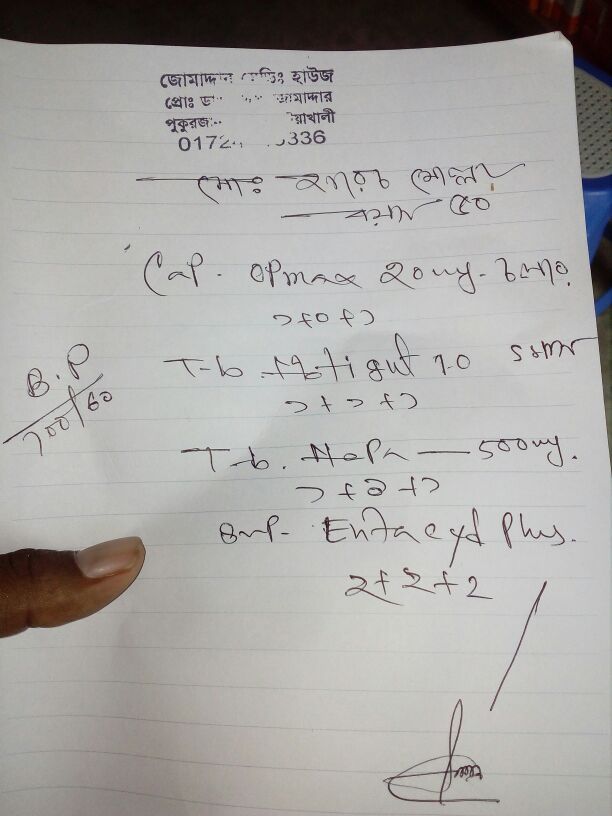 জোমাদ্দার হাউজ
প্রোঃ জোমাদ্দার
0172 336
মোঃ মোল্লা
বয়স ৫০
Cap. OPmax 20mg.
১+০+১
B.P
100/60
Tab. Motigut 10
১+১+১
Tab. Napa — 500mg.
১+১+১
Entacyd Plus.
২+২+২